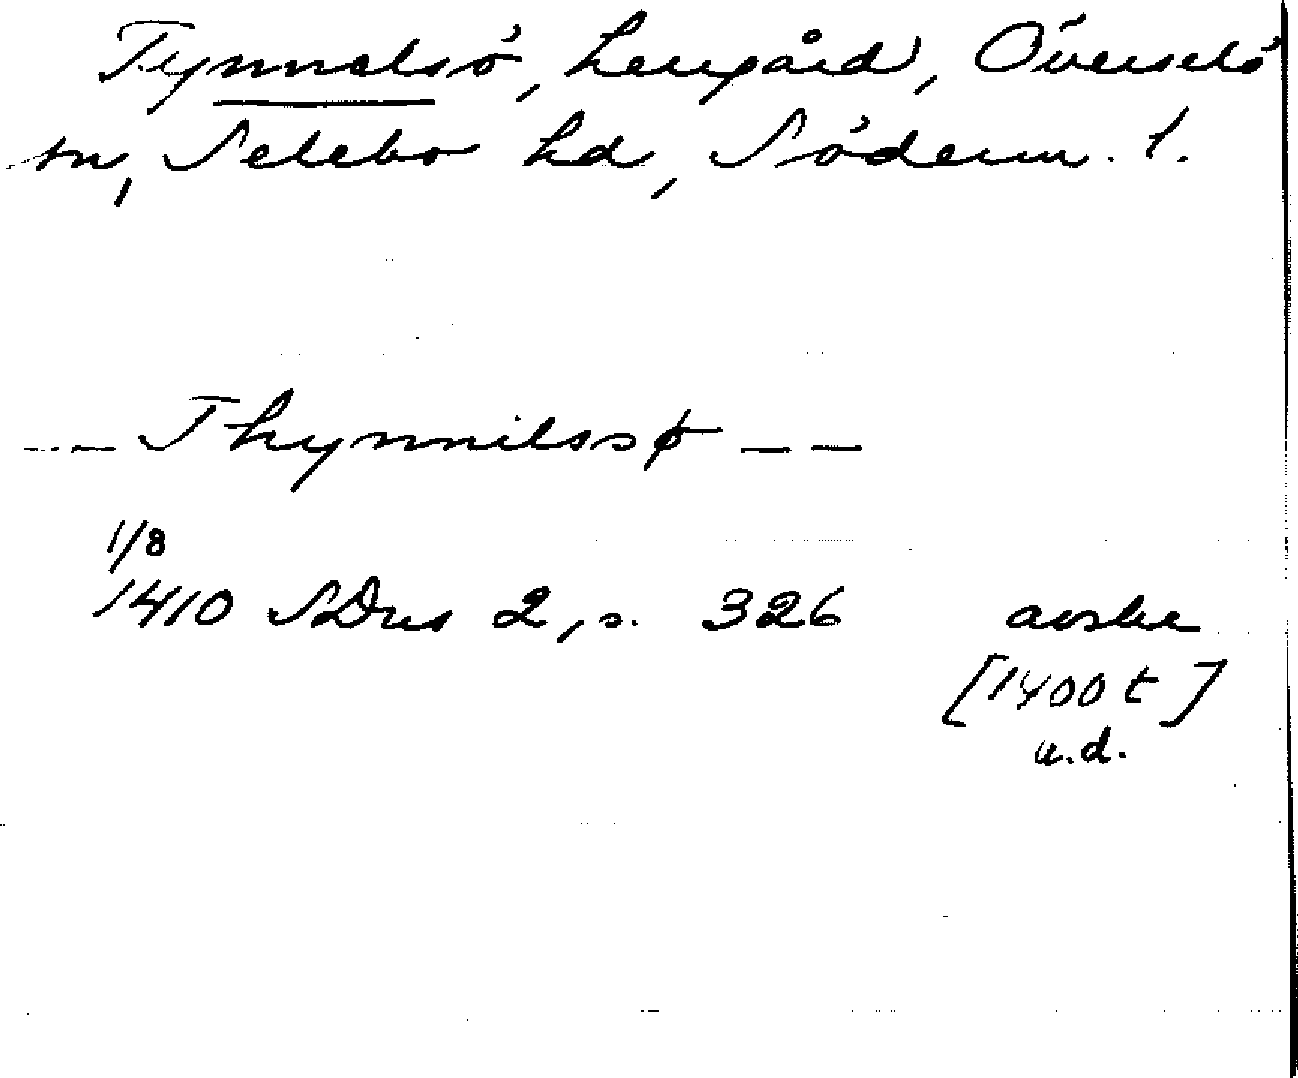 Tynnelsö, herrgård, Överselö
sn, Selebo hd, Söderm. l.
--- Thynnilssø --
1/8
1410 SDns 2, s. 326 avskr
[1400 t]
u.d.